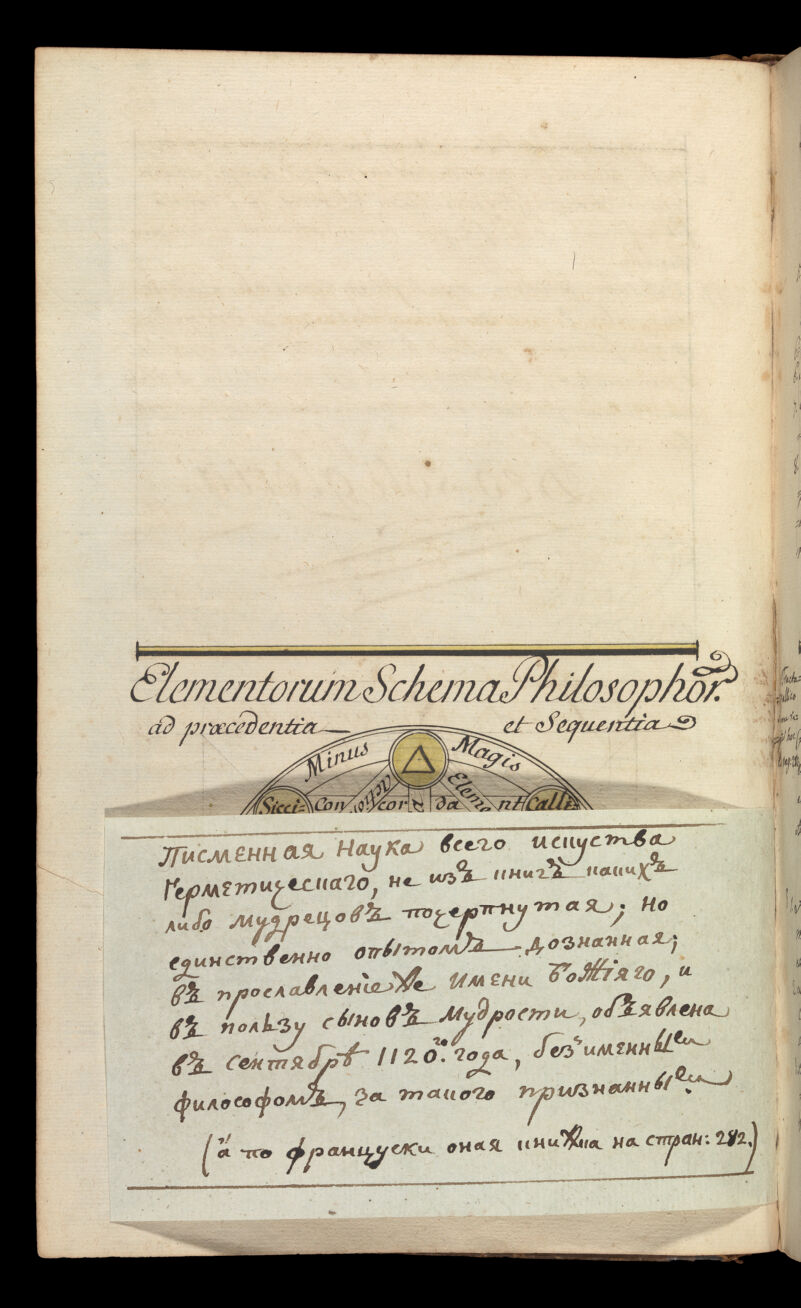 Elementorum Schema Philosophor.
ad præcedentia et Sequentia
Minus Magis
Sicci- Con cor da nt Calli
Писменная Наука всего искуства
Герметическаго, не изъ книгъ какихъ
либо мудрецовъ почерпнутая; но
единственно опытомъ дознанная;
въ прославленіе же имени Божіяго, и
въ пользу сыновъ мудрости, объявлена
въ сентябрѣ 1120.го года, безъименным
философомъ, за такого признанным.
(а по француски оная книжка на стран: 282.)